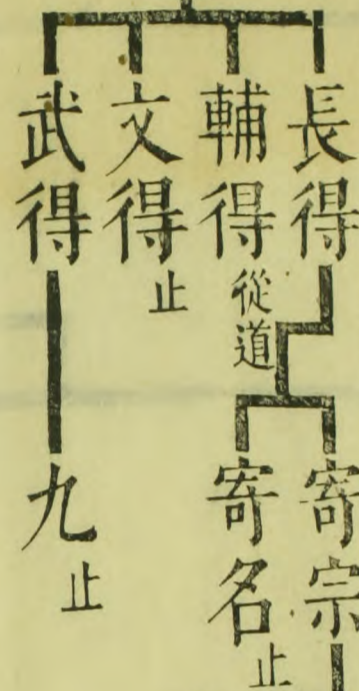 長得
輔得 從道
文得 止
武得
寄宗
寄名 止
九 止